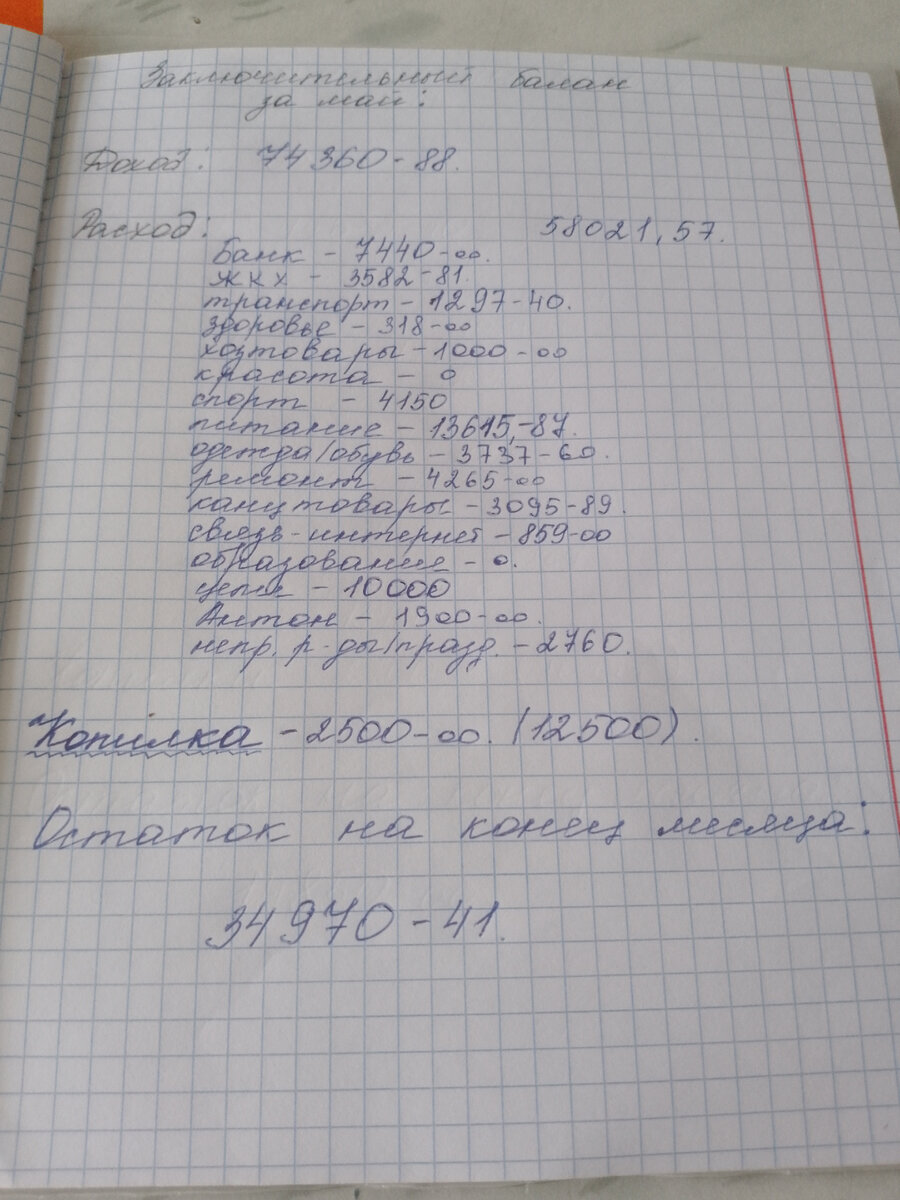 Заключительный балан
за май:
Доход: 74360-88.
Расход: 58021,57.
Банк - 7440-00.
ЖКХ - 3582-81.
транспорт - 1297-40.
здоровье - 318-00
хозтовары - 1000-00
красота - 0
спорт - 4150
питание - 13615,-87.
одежда/обувь - 3737-60.
ремонт - 4265-00
канцтовары - 3095-89.
связь-интернет - 859-00
образование - 0.
цели - 10000
Антон - 1900-00.
непр. р-ды/празд. - 2760.
Копилка - 2500-00. (12500).
Остаток на конец месяца:
34970-41.